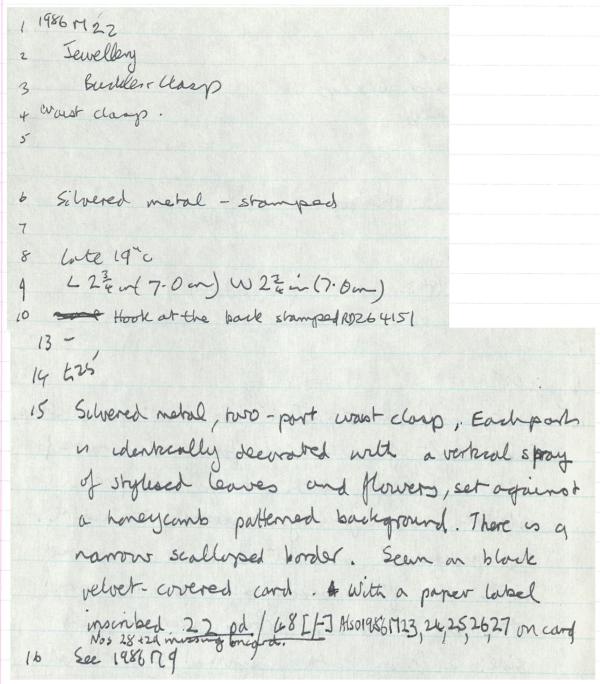 1 1986 M 22
2 Jewellery
3 Buckles + Clasp
4 Waist clasp.
5
6 Silvered metal - stamped
7
8 Late 19th c
9 L 2 3/4 in (7.0 cm) W 2 3/4 in (7.0 cm)
10 Hook at the back stamped RD264151
13 -
14 £25
15 Silvered metal, two-part waist clasp, Each part
is identically decorated with a vertical spray
of stylised leaves and flowers, set against
a honeycomb patterned background. There is a
narrow scalloped border. Sewn on black
velvet-covered card. With a paper label
inscribed 22 pd / 48 [/-] Also 1986 M23, 24, 25, 26, 27 on card
Nos 28 + 29 missing on card.
16 See 1986 M 9